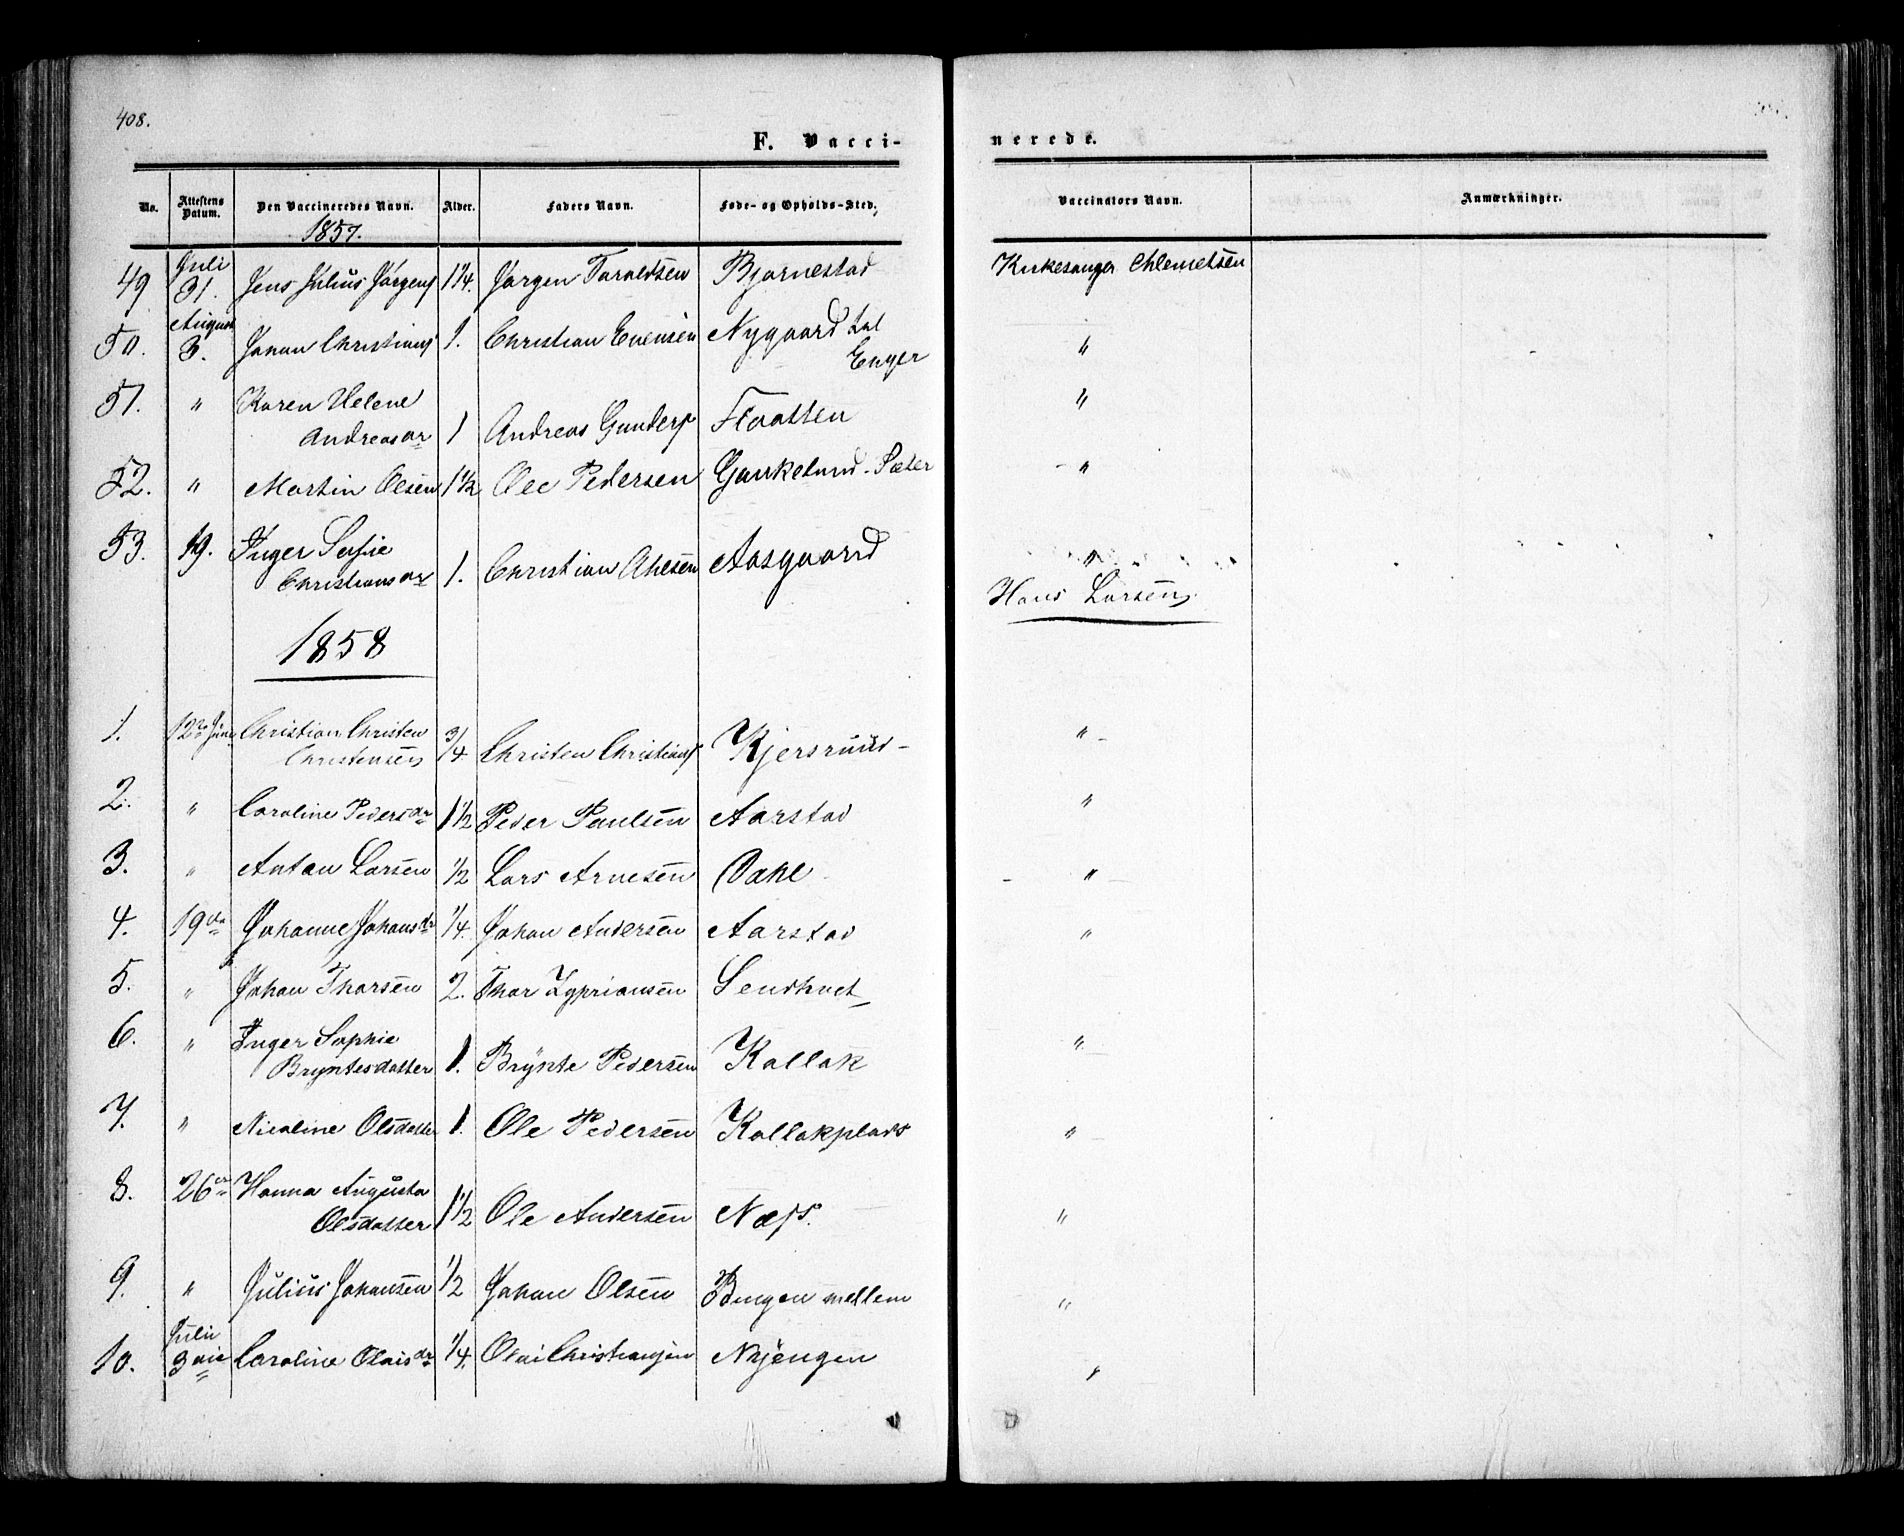 408.
F. Vacci-
nerede.
No. Attestens Datum. Den Vaccineredes Navn. Alder. Faders Navn. Føde- og Opholds-Sted. Vaccinators Navn. Anmærkninger.
1857.
49 Juli 31. Jens Julius Jørgens 1 1/4. Jørgen Taraldsen Bjørnestad Kirkesanger Chlemetsen
50. August 3. Johan Christians 1. Christian Evensen Nygaard
Enger "
51. " Karen Helene
Andreasdr 1 Andreas Gunders Flaatten "
52. " Martin Olsen 1 1/2 Ole Pedersen Gaukelund-Sæter "
53. 19. Inger Sofie
Christiansdr 1. Christian Olesen Aasgaard "
Hans Larsen
1858
1. 12te Juni Christian Christen
Christensen 3/4. Christen Christians Kjersruud "
2. " Caroline Pedersdr 1 1/2 Peder Paulsen Aarstad "
3. " Anton Larsen 1/2 Lars Arnesen Dahl "
4. 19de Johanne Johansdr 1/4. Johan Andersen Aarstad "
5. " Johan Thorsen 2. Thor Zypriansen
6. " Inger Sophie
Bryntesdatter 1. Brynte Pedersen Kollak "
7. " Nicoline Olsdatter 1. Ole Pedersen Kollakplads "
8. 26de Hanna Augusta
Olsdatter 1 1/2 Ole Andersen Næss. "
9. " Julius Johansen 1/2 Johan Olsen Bingen mellem "
10. Julii 3die Caroline Olaisdr 1/4. Olai Christiansen Nyjengen "